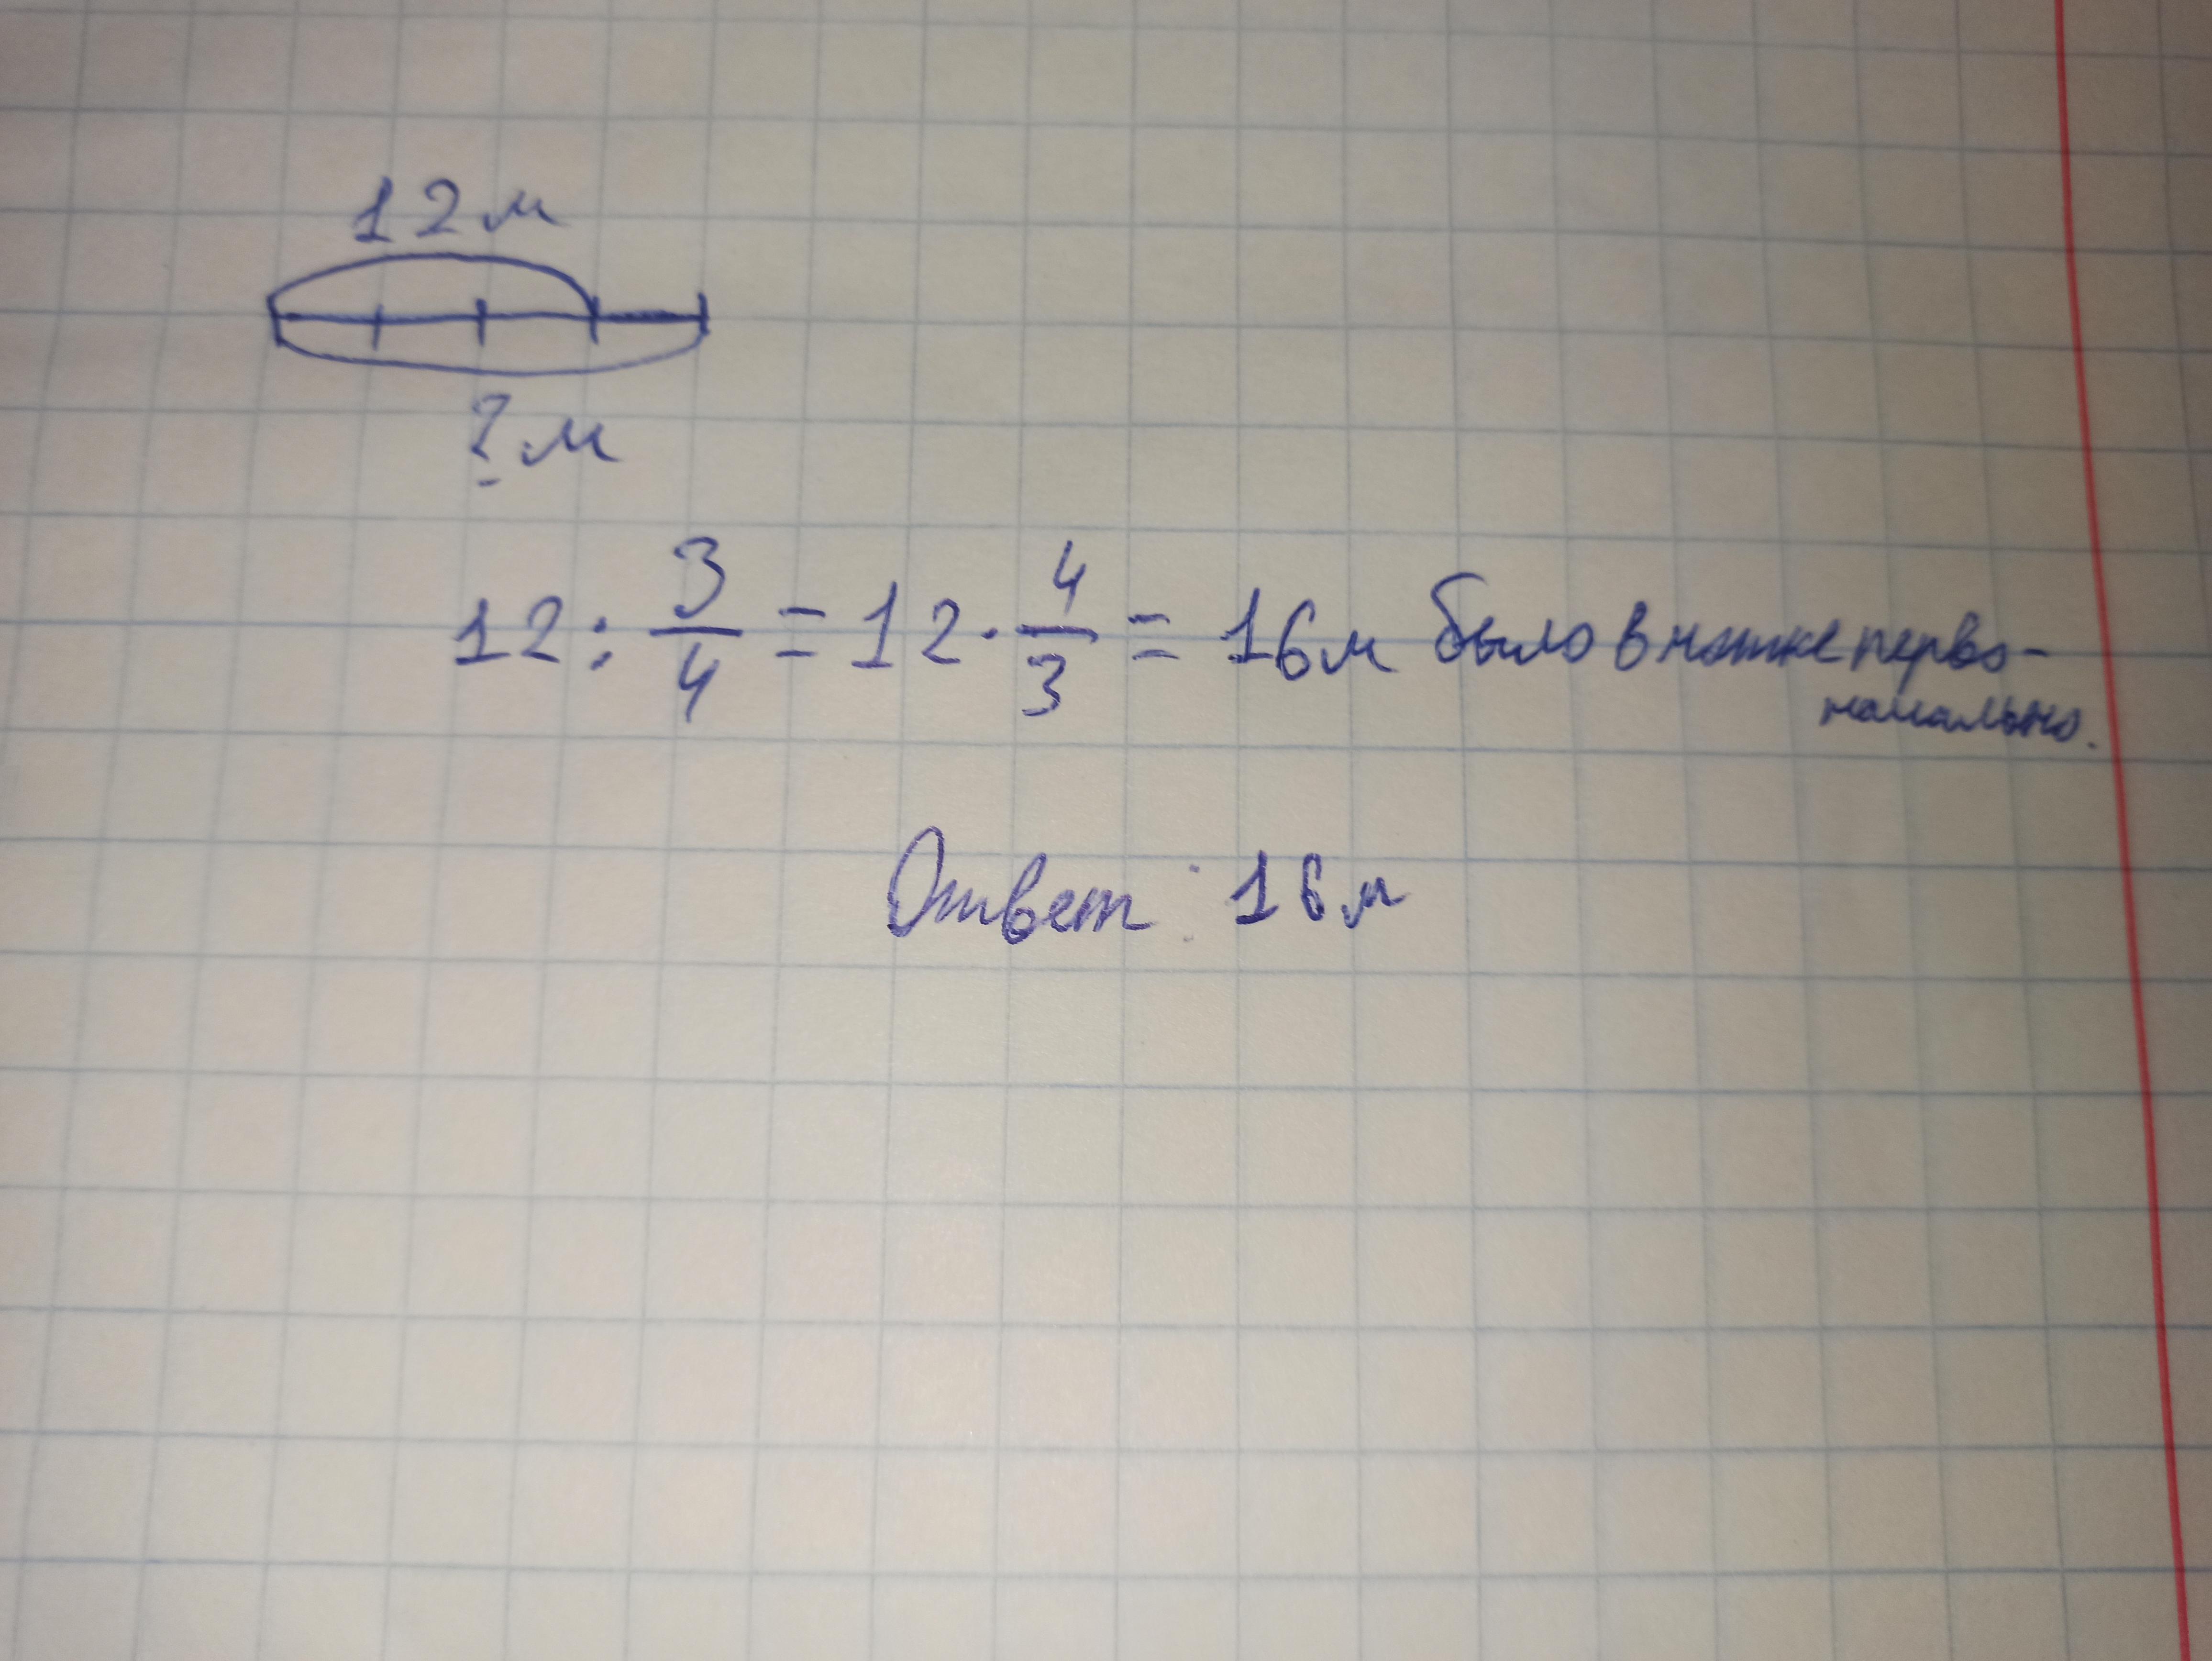 12м
?м
12 : 3/4 = 12 · 4/3 = 16м было в нитке перво-
начально.
Ответ : 16м